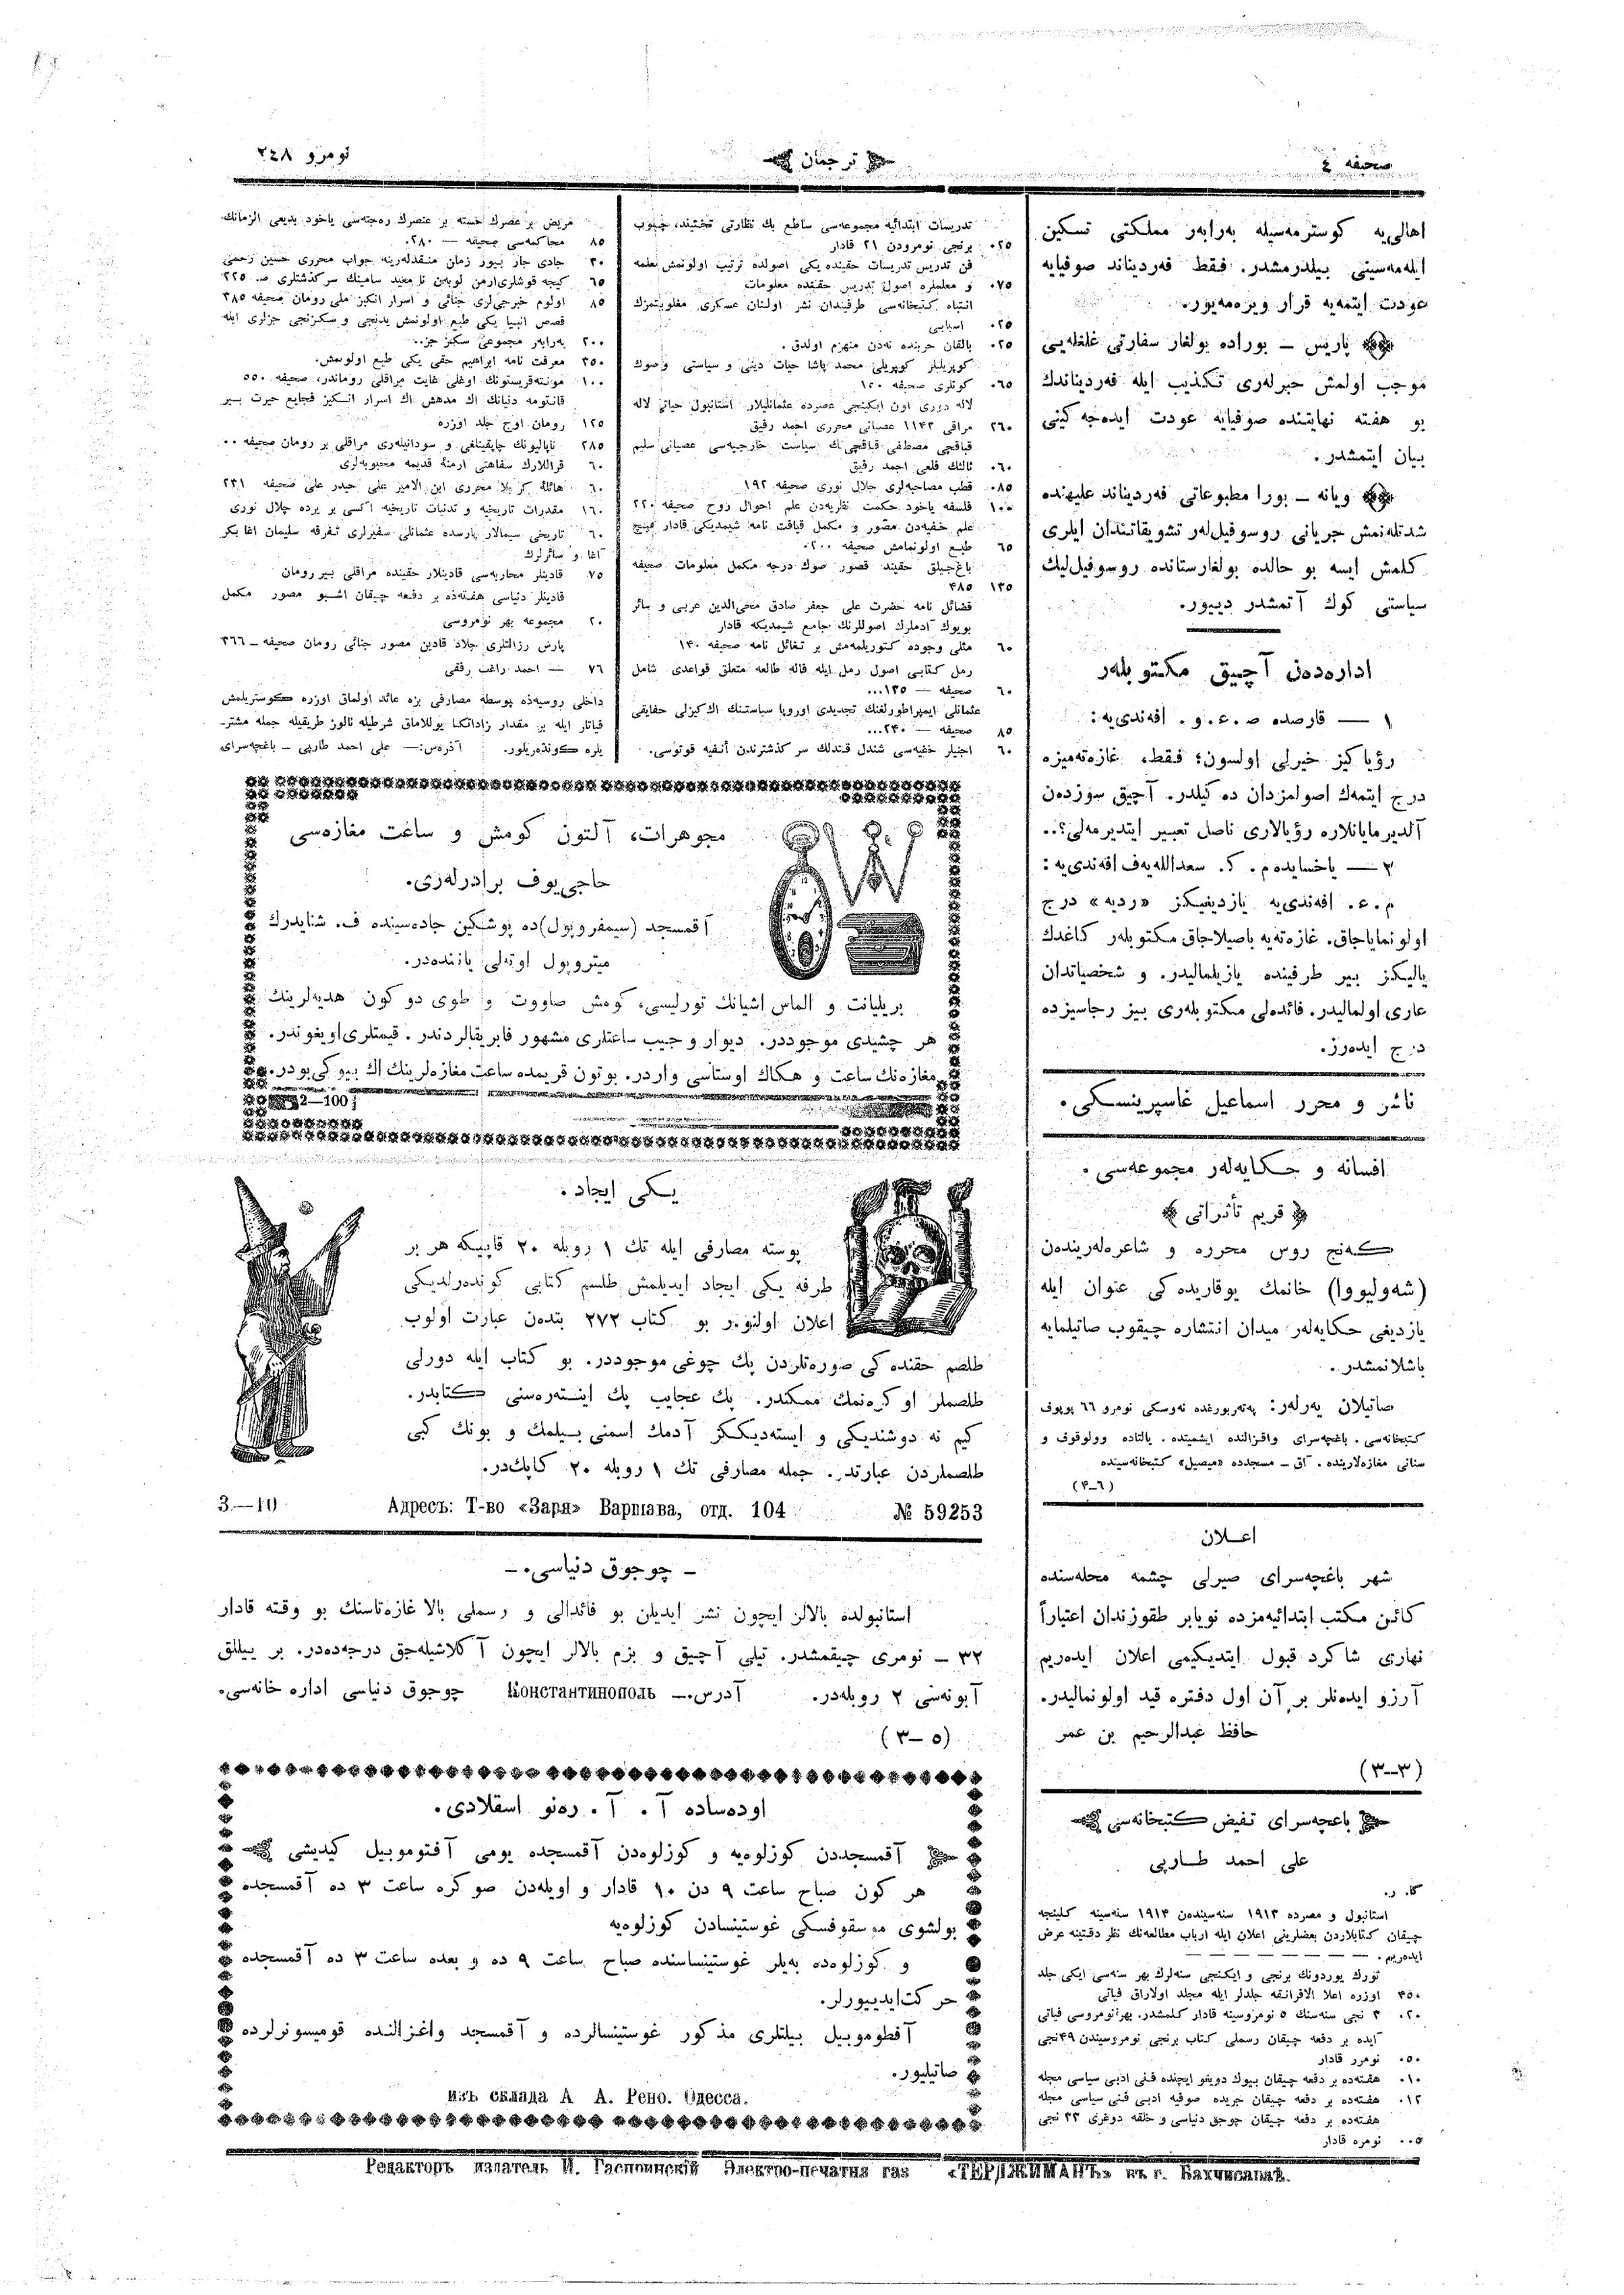 صحیفه ٤
ترجمان
نومرو ٢٤٨
اهالی‌یه کوسترمه‌سیله به‌رابه‌ر مملکتی تسکین
ایله‌مه‌سینی بیلدرمشدر. فقط فه‌ردیناند صوفیایه
عودت ایتمه‌یه قرار ویره‌مه‌یور.
پاریس ـ بوراده بولغار سفارتی غلغله‌یی
موجب اولمش خبرله‌ری تکذیب ایله فه‌ردیناندك
بو هفته نهایتنده صوفیایه عودت ایده‌جه‌کینی
بیان ایتمشدر.
ویانه ـ بورا مطبوعاتی فه‌ردیناند علیهنده
شدتله‌نمش جریانی روسوفیل‌له‌ر تشویقاتندان ایلری
کلمش ایسه بو حالده بولغارستانده روسوفیل‌لیك
سیاستی کوك آتمشدر دییور.
اداره‌ده‌ن آچیق مکتوبله‌ر
١ — قارصده ص. ع. و. افه‌ندی‌یه:
رؤیاکیز خیرلی اولسون؛ فقط، غازه‌ته‌میزه
درج ایتمه‌ك اصولمزدان ده‌کیلدر. آچیق سوزده‌ن
آلدیرمایانلاره رؤیالاری ناصل تعبیر ایتدیرمه‌لی؟..
٢ — یاخسایده م. ك. سعدالله‌یه‌ف افه‌ندی‌یه:
م. ع. افه‌ندی‌یه یازدیغیکز «ردیه» درج
اولونمایاجاق. غازه‌ته‌یه باصیلاجاق مکتوبله‌ر کاغدك
یالیکز بیر طرفینده یازیلمالیدر. و شخصیاتدان
عاری اولمالیدر. فائده‌لی مکتوبله‌ری بیز رجاسیزده
درج ایده‌رز.
ناشر و محرر اسماعیل غاسپرینسکی.
افسانه و حکایه‌له‌ر مجموعه‌سی.
قریم تأثراتی
که‌نج روس محرره و شاعره‌له‌رینده‌ن
(شه‌ولیووا) خانمك یوقاریده‌کی عنوان ایله
یازدیغی حکایه‌له‌ر میدان انتشاره چیقوب صاتیلمایه
باشلانمشدر.
صاتیلان یه‌رله‌ر: په‌ته‌ربورغده نه‌وسکی نومرو ٦٦ پوپوف
کتبخانه‌سی. باغچه‌سرای واقزالنده ایشمیتده. یالتاده وولوقوف و
سنانی مغازه‌لارینده. آق ـ مسجدده «میصیل» کتبخانه‌سینده
اعلان
شهر باغچه‌سرای صیرلی چشمه محله‌سنده
کائن مکتب ابتدائیه‌مزده نویابر طقوزندان اعتباراً
نهاری شاکرد قبول ایتدیکیمی اعلان ایده‌ریم
آرزو ایده‌نلر بر آن اول دفتره قید اولونمالیدر.
حافظ عبدالرحیم بن عمر
(٣ـ٣)
باغچه‌سرای تفیض کتبخانه‌سی
علی احمد طارپی
استانبول و مصرده ١٩١٣ سنه‌سینده‌ن ١٩١٤ سنه‌سینه کلینجه
چیقان کتابلاردن بعضلرینی اعلان ایله ارباب مطالعه‌نك نظر دقتینه عرض
ایده‌ریم.
تورك یوردونك برنجی و ایکنجی سنه‌لرك بهر سنه‌سی ایکی جلد
اوزره اعلا الافرانقه جلدلر ایله مجلد اولاراق فیاتی ٣٥٠
٣ نجی سنه‌سنك ٥ نومروسینه قادار کلمشدر. بهر نومروسی فیاتی ٠٢٠
آیده بر دفعه چیقان رسملی کتاب برنجی نومروسیندن ٤٩نجی
نومرر قادار ٠٥٠
هفته‌ده بر دفعه چیقان بیوك دویغو ایچنده فنی ادبی سیاسی مجله ٠١٠
هفته‌ده بر دفعه چیقان جریده صوفیه ادبی فنی سیاسی مجله ٠١٢
هفته‌ده بر دفعه چیقان چوجق دنیاسی و خلقه دوغری ٢٣ نجی
نومره قادار ٠٠٥
تدریسات ابتدائیه مجموعه‌سی ساطع بك نظارتی تحتیند، چیوب
برنجی نومرودن ٢١ قادار ٠٢٥
فن تدریس تدریسات حقینده یکی اصولده ترتیب اولونمش معلمه
و معلملره اصول تدریس حقینده معلومات ٠٧٥
انتباه کتبخانه‌سی طرفیندان نشر اولنان عسکری مغلوبیتمزك
اسبابی ٠٢٥
بالقان حربنده نه‌دن منهزم اولدق. ٠٢٥
کوپریلیلر کوپریلی محمد پاشا حیات دینی و سیاسی وصوك
کونلری صحیفه ١٥٠ ٠٦٥
لاله دوری اون ایکینجی عصرده عثمانلیلار استانبول حیاتی لاله
مراقی ١١٤٣ عصیانی محرری احمد رفیق ٢٦٠
قباقچی مصطفی قباقچی‌نك سیاست خارجیه‌سی عصیانی سلیم
ثالثك قلعی احمد رفیق ٠٦٠
قطب مصاحبه‌لری جلال نوری صحیفه ١٩٢ ٠٨٥
فلسفه یاخود حکمت نظریه‌دن علم احوال روح صحیفه ٢٢٠ ١٠٠
علم خفیه‌دن مصور و مکمل قیافت نامه شیمدیکی قادار هیچ
طبع اولونمامش صحیفه ٢٠٠ ٦٥
باغ‌جیلق حقیند قصور صوك درجه مکمل معلومات صحیفه
٤٨٥ ١٣٥
فضائل نامه حضرت علی جعفر صادق محی‌الدین عربی و سائر
بویوك آدملرك اصوللرنك جامع شیمدیکه قادار
مثلی وجوده کتوریلمه‌مش بر تفائل نامه صحیفه ١٤٠ ٦٠
رمل کتابی اصول رمل ایله فاله طالعه متعلق قواعدی شامل
صحیفه — ١٣٥... ٦٠
عثمانلی ایمپراطورلغنك تجدیدی اوروپا سیاستنك اك کیزلی حقایقی
صحیفه — ٢٤٠... ٨٥
اجنیلر خفیه‌سی شندل قندلك سرکذشترندن أنفیه قوتوسی. ٦٠
مریض بر عصرك خسته بر عنصرك ره‌جته‌سی یاخود بدیعی الزمانك
محاکمه‌سی صحیفه — ٢٨٠. ٨٥
جادی جار بیور زمان منقدله‌رینه جواب محرری حسین رحمی ٣٠
کیجه قوشلری‌ارمن لوپه‌ن نامعید سامینك سرکذشتلری ص. ٢٢٥ ٦٥
اولوم خیرجی‌لری جنائی و اسرار انکیز ملی رومان صحیفه ٣٨٥ ٨٥
قصص انبیا یکی طبع اولونمش یدنجی و سکزنجی جزلری ایله
به‌رابه‌ر مجموعی سکیز جز.. ٢٠٠
معرفت نامه ابراهیم حقی یکی طبع اولونمش. ٣٥٠
مونته‌قریستونك اوغلی غایت مراقلی روماندر، صحیفه ٥٥٠ ١٠٠
فانتومه دنیانك اك مدهش اك اسرار انسکیز فجایع حیرت بیر
رومان اوچ جلد اوزره ١٢٥
ناپالیونك چاپقینلغی و سودانیله‌ری مراقلی بر رومان صحیفه ٠٠ ٢٨٥
قراللارك سفاهتی ازمنهٔ قدیمه محبوبه‌لری ٦٠
هائلهٔ کربلا محرری ابن الامیر علی حیدر علی صحیفه ٢٣١ ٦٠
مقدرات تاریخیه و تدنیات تاریخیه اکسی بر یرده جلال نوری ١٦٠
تاریخی سیمالار پارسده عثمانلی سفیرلری تفرقه سلیمان اغا بکر ٦٠
آغا و سائرلرك
قادینلر محاربه‌سی قادینلار حقینده مراقلی بیر رومان ٧٥
قادینلر دنیاسی هفته‌ده بر دفعه چیقان اشبو مصور مکمل
مجموعه بهر نومروسی ٢٠
پارس رزالتلری جلاد قادین مصور جنائی رومان صحیفه ـ ٣٦٦
— احمد راغب رفقی ٧٦
داخلی روسیه‌ده پوسطه مصارفی بزه عائد اولماق اوزره کوستریلمش
فیاتار ایله بر مقدار زاداتکا یوللاماق شرطیله نالوژ طریقیله جمله مشتر-
یلره کونده‌ریلور. آدره‌س:— علی احمد طارپی ـ باغچه‌سرای
مجوهرات، آلتون کومش و ساعت مغازه‌سی
حاجی‌یوف برادرله‌ری.
آقمسجد (سیمفروپول)ده پوشکین جاده‌سینده ف. شنایدرك
میتروپول اوته‌لی یاننده‌در.
بریلیانت و الماس اشیانك تورلیسی، کومش صاووت و طوی دوکون هدیه‌لرینك
هر چشیدی موجوددر. دیوار و جیب ساعتلری مشهور فابریقالردندر. قیمتلری اویغوندر.
مغازه‌نك ساعت و هکاك اوستاسی واردر. بوتون قریمده ساعت مغازه‌لرینك اك بیوکی بودر.
2—100
یکی ایجاد.
پوسته مصارفی ایله تك ١ روبله ٢٠ قاپیکه هر بر
طرفه یکی ایجاد ایدیلمش طلسم کتابی کونده‌رلدیکی
اعلان اولنور بو کتاب ٢٧٢ بتدن عبارت اولوب
طلصم حقنده‌کی صوره‌تلردن پك چوغی موجوددر. بو کتاب ایله دورلی
طلصملر اوکره‌نمك ممکندر. پك عجایب پك اینته‌ره‌سنی کتابدر.
کیم نه دوشندیکی و ایسته‌دیککز آدمك اسمنی بیلمك و بونك کبی
طلصملردن عبارتدر. جمله مصارفی تك ١ روبله ٢٠ کاپك‌در.
3—10 Адресъ: Т-во «Заря» Варшава, отд. 104 № 59253
ـ چوجوق دنیاسی. ـ
استانبولده بالالر ایچون نشر ایدیلن بو فائدالی و رسملی بالا غازه‌تاسنك بو وقته قادار
٣٢ ـ نومری چیقمشدر. تیلی آچیق و بزم بالالر ایچون آکلاشیله‌جق درجه‌ده‌در. بر ییللق
آبونه‌سی ٢ روبله‌در. آدرس.ـ Константинополь چوجوق دنیاسی اداره خانه‌سی.
(٥ ـ٣)
اوده‌ساده آ. آ. ره‌نو اسقلادی.
آقمسجددن کوزلوه‌یه و کوزلوه‌دن آقمسجده یومی آفتوموبیل کیدیشی
هر کون صباح ساعت ٩ دن ١٠ قادار و اویله‌دن صوکره ساعت ٣ ده آقمسجده
بولشوی موسقوفسکی غوستینسادن کوزلوه‌یه
و کوزلوه‌ده به‌یلر غوستینساسنده صباح ساعت ٩ ده و بعده ساعت ٣ ده آقمسجده
حرکت‌ایدییورلر.
آفطوموبیل بیلتلری مذکور غوستینسالرده و آقمسجد واغزالنده قومیسونرلرده
صاتیلیور.
изъ склада А А. Рено. Одесса.
Редакторъ издатель И. Гаспринскій Электро-печатня газ «ТЕРДЖИМАНЪ» въ г. Бахчисараѣ.